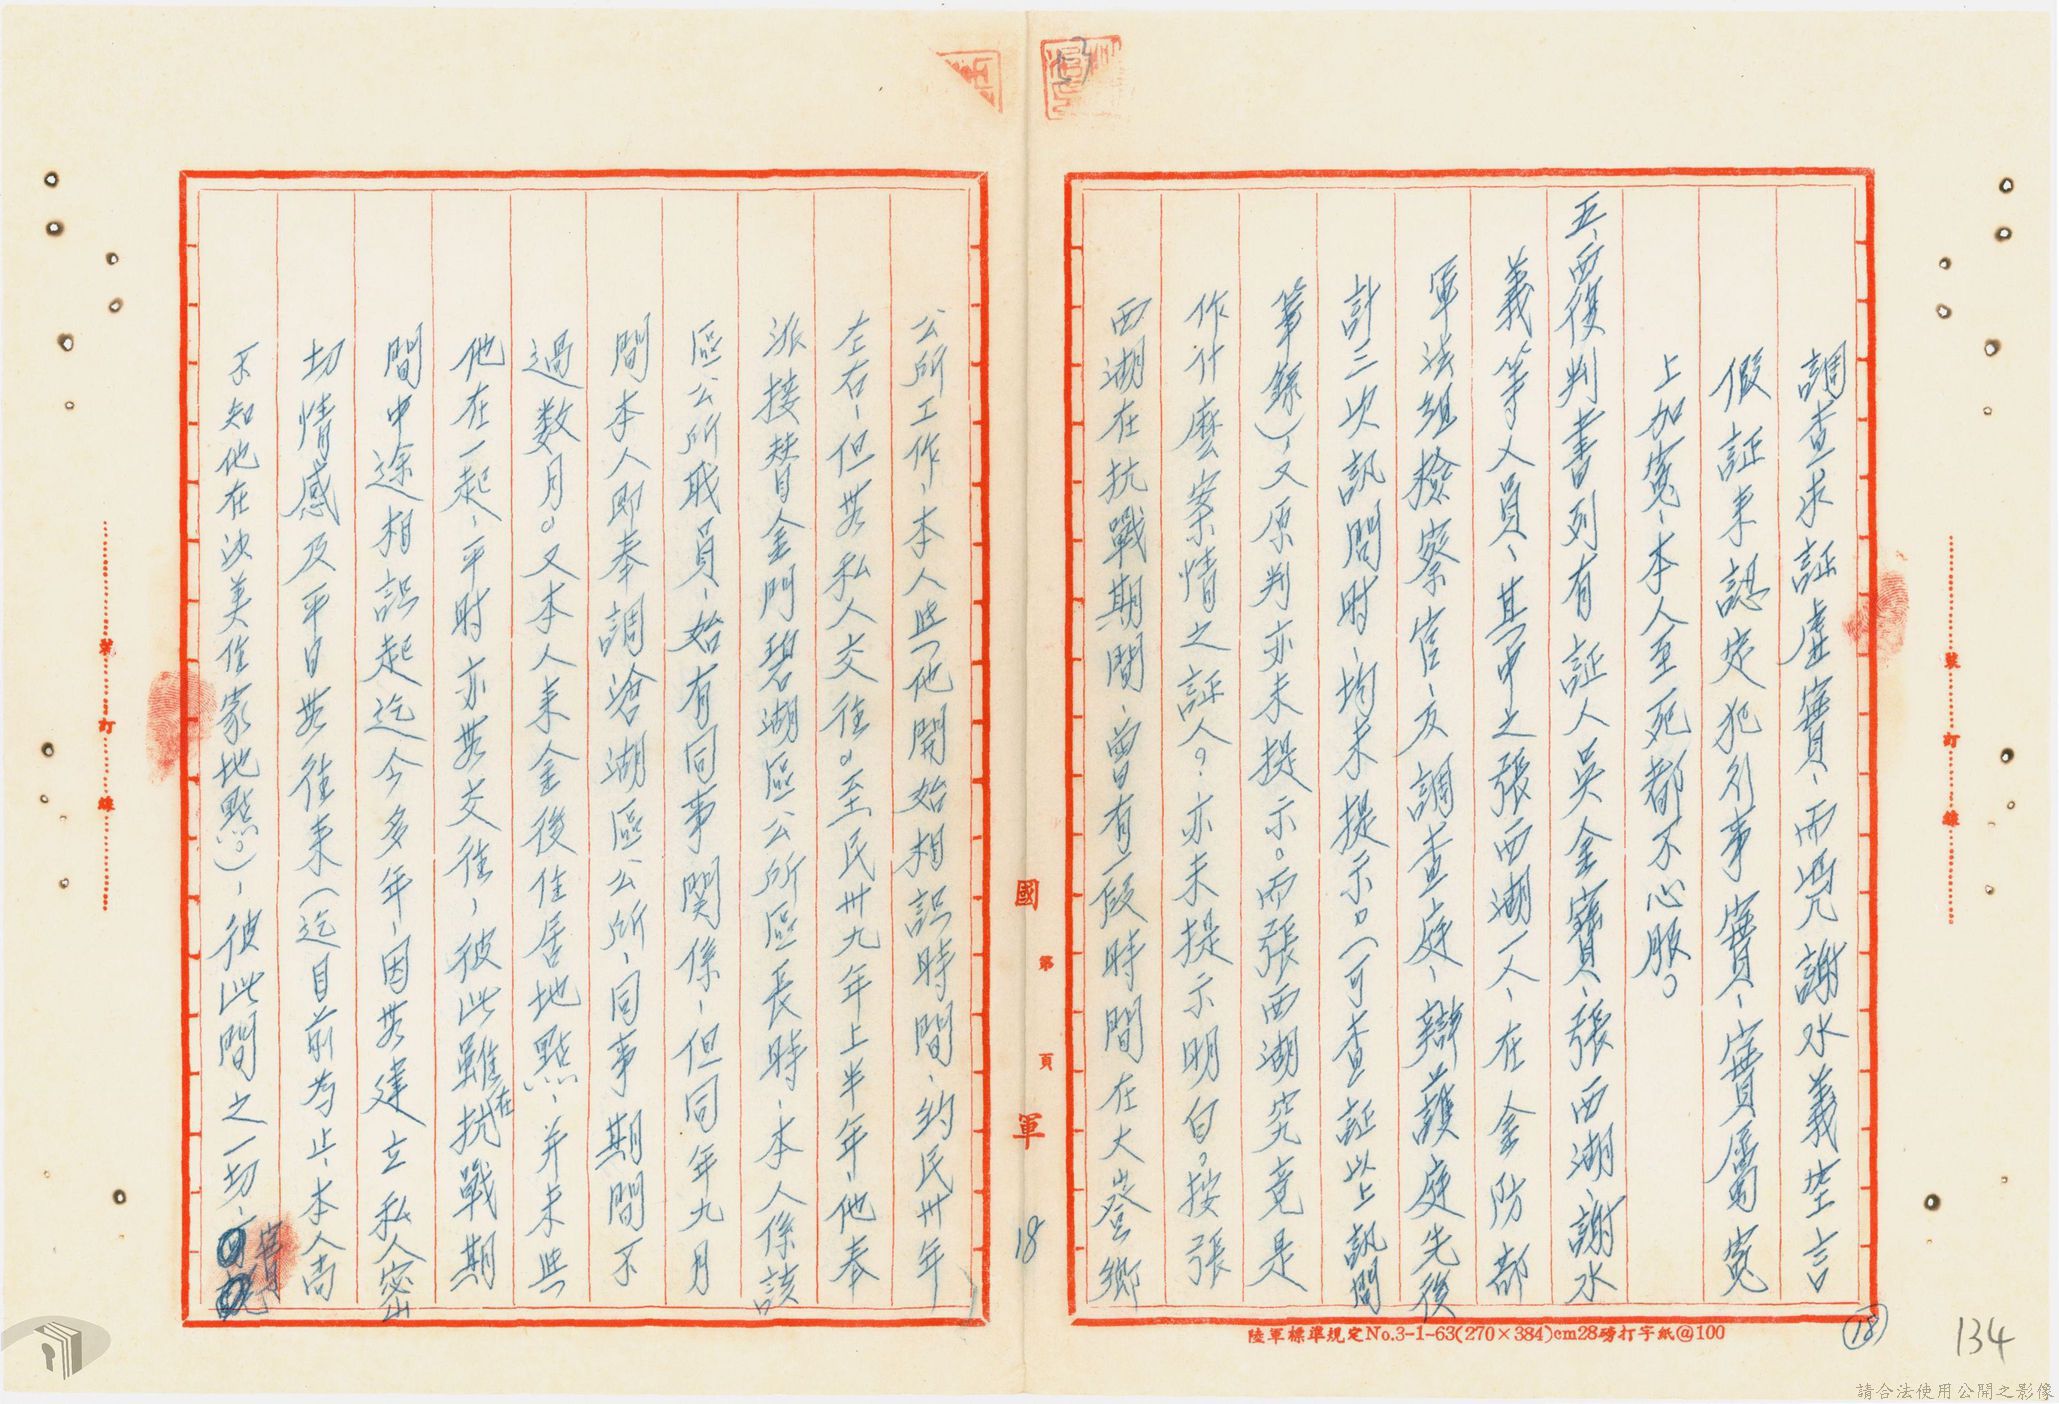 調查求証虛實、而凭謝水義空言
假証来認定犯引事實、實屬寃
上加寃、本人至死都不心服。
五、而復判書列有証人吳金寶、張西湖、謝水
義等人員、其中之張西湖一人、在金防部
軍法組檢察官及調查庭、辯護庭先後
計三次訊問時、均未提示。(可查証以上訊問
筆錄)、又原判亦未提示。而張西湖究竟是
作什麼案情之証人。亦未提示明白。按張
西湖在抗戰期間、曾有一段時間在大嶝鄉
公所工作、本人與他開始相識時間、約民卅年
左右、但無私人交往。至民卅九年上半年、他奉
派接替金門碧湖區公所區長時、本人係該
區公所职員、始有同事関係、但同年九月
間本人即奉調滄湖區公所、同事期間不
過数月。又本人来金後住居地點、并未與
他在一起、平时亦無交往、彼此雖在抗戰期
間中途相識起迄今多年、因無建立私人密
切情感及平日無往来(迄目前為止、本人尚
不知他在浯美住家地點。)、彼此間之一切、
國 第 頁 軍 18
裝 訂 線
裝 訂 線
陸軍標準規定No.3-1-63(270×384)cm28磅打字紙@100
18
134
請合法使用公開之影像